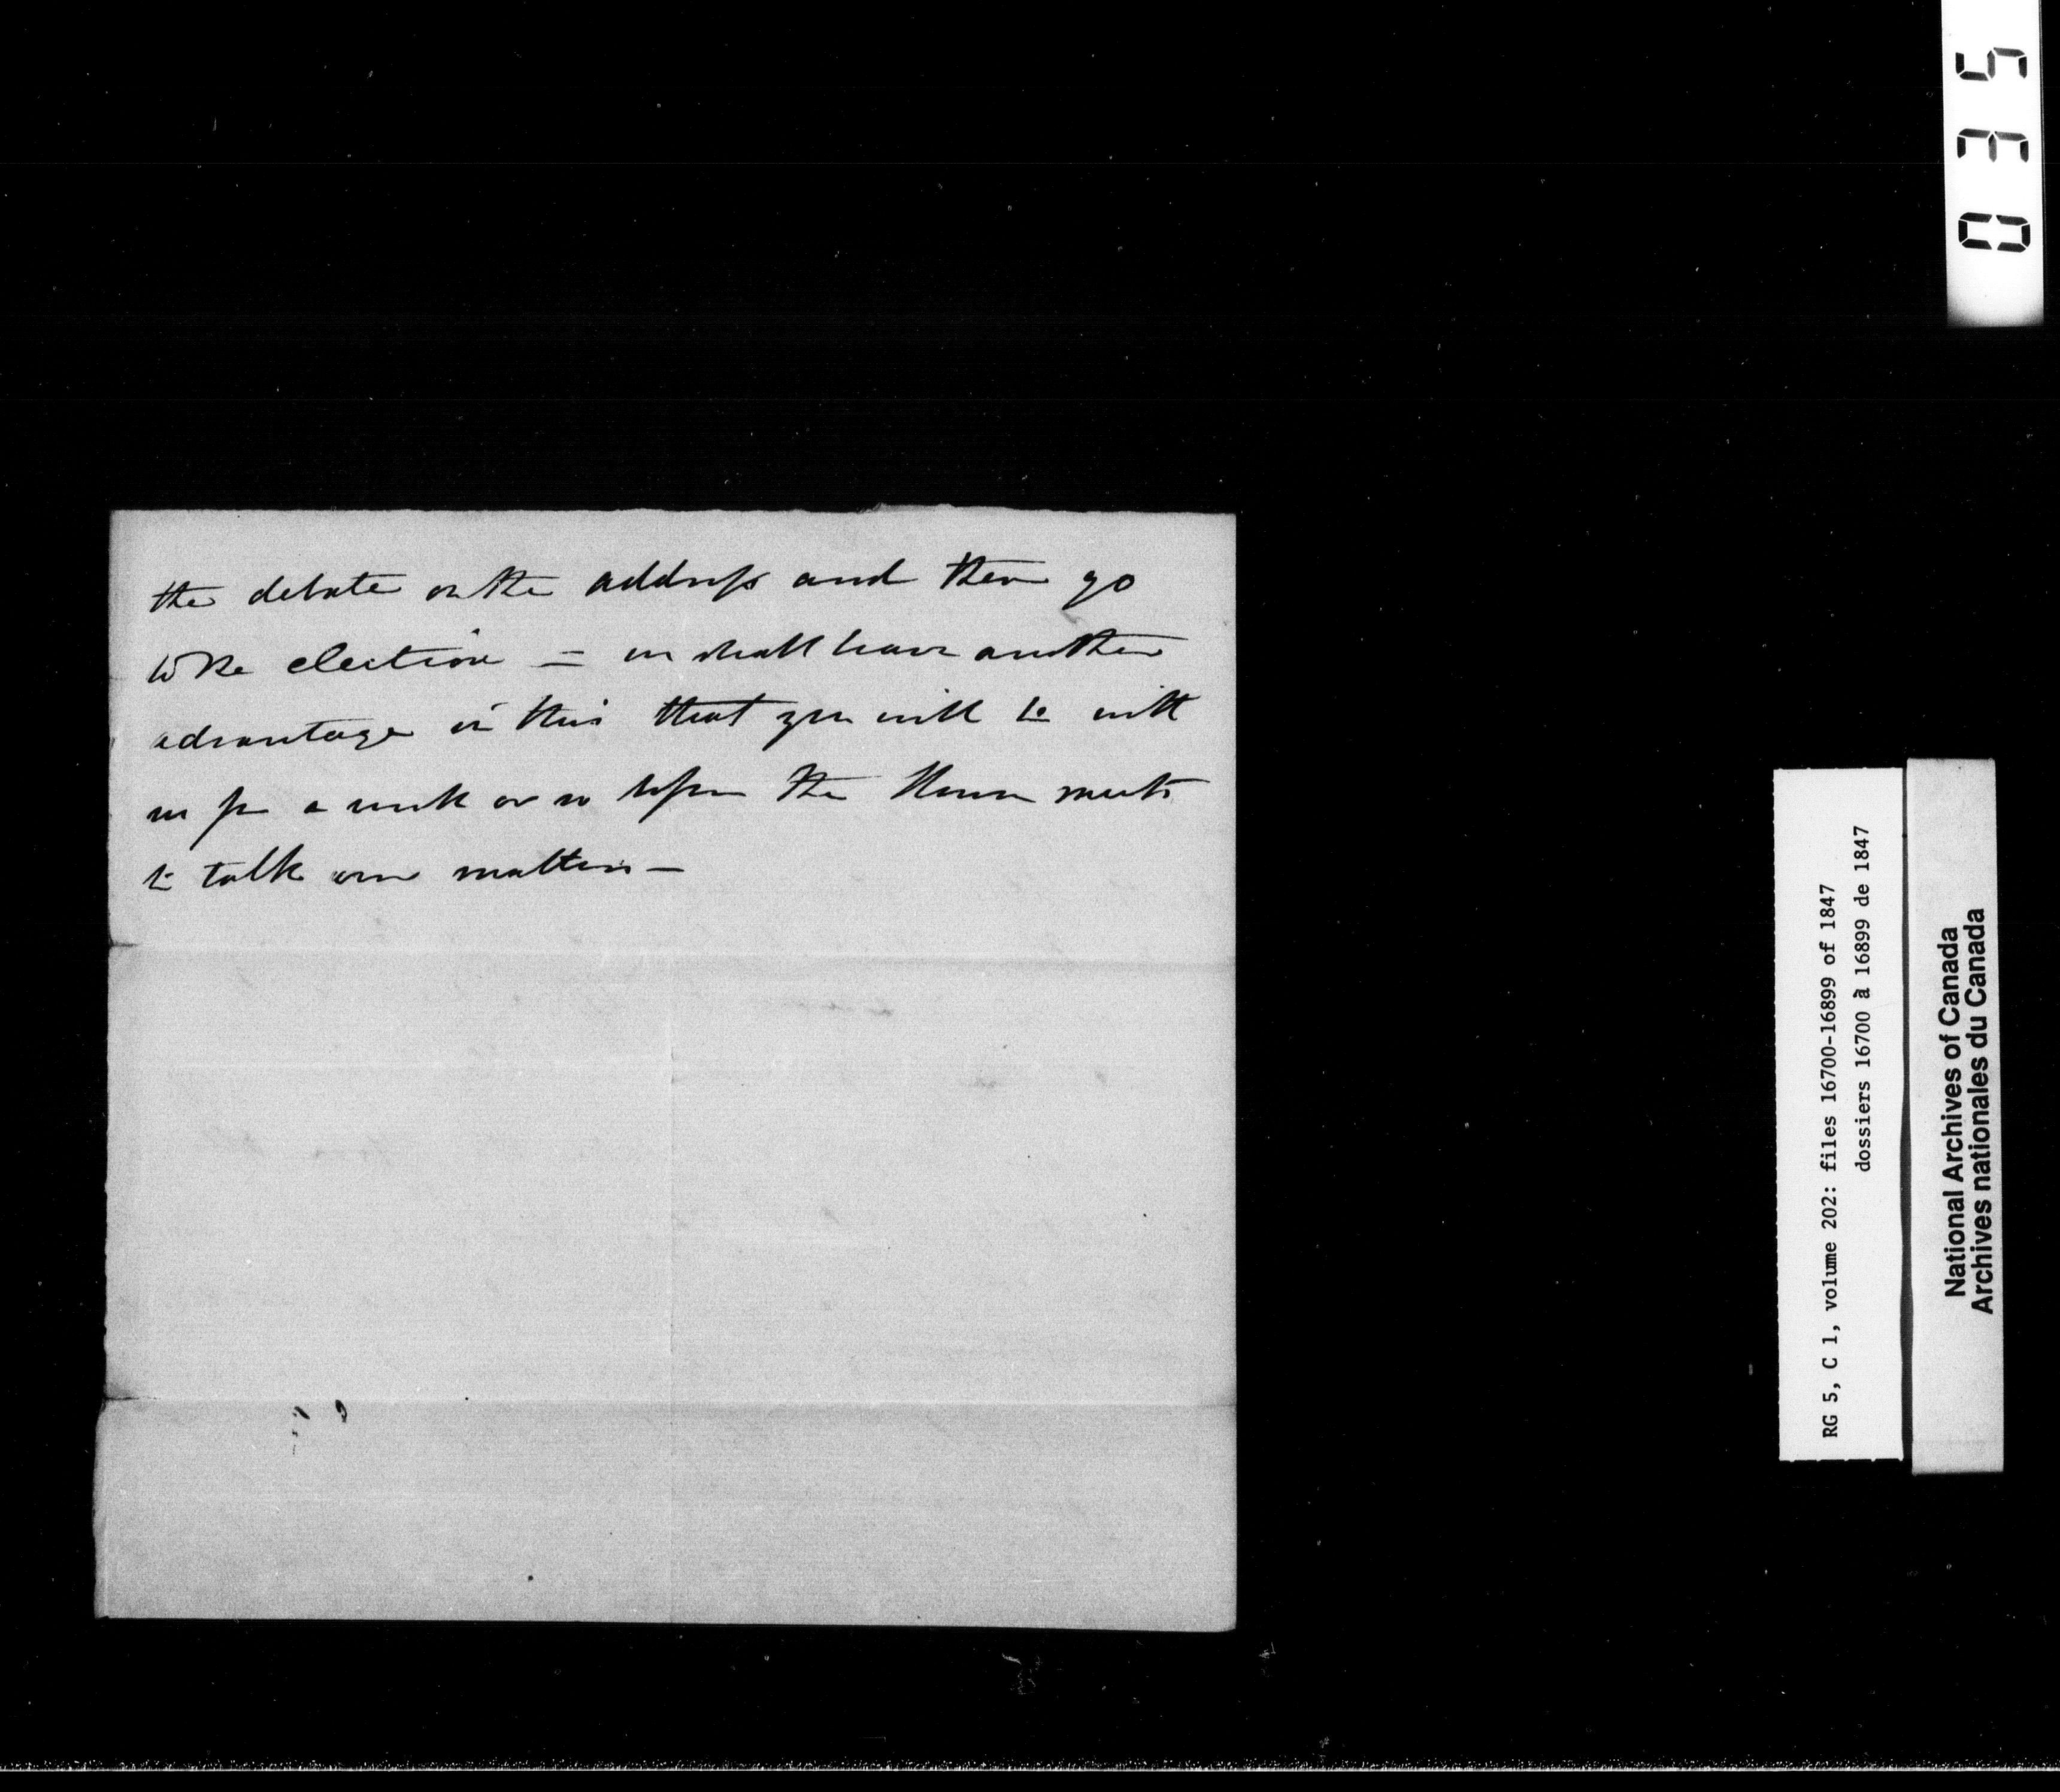 the debate on the address and then go
to the election = we shall have another
advantage in this that you will be with
us for a week or so before the House meets
to talk over matters —
035
RG 5, C 1, volume 202: files 16700-16899 of 1847
dossiers 16700 à 16899 de 1847
National Archives of Canada
Archives nationales du Canada